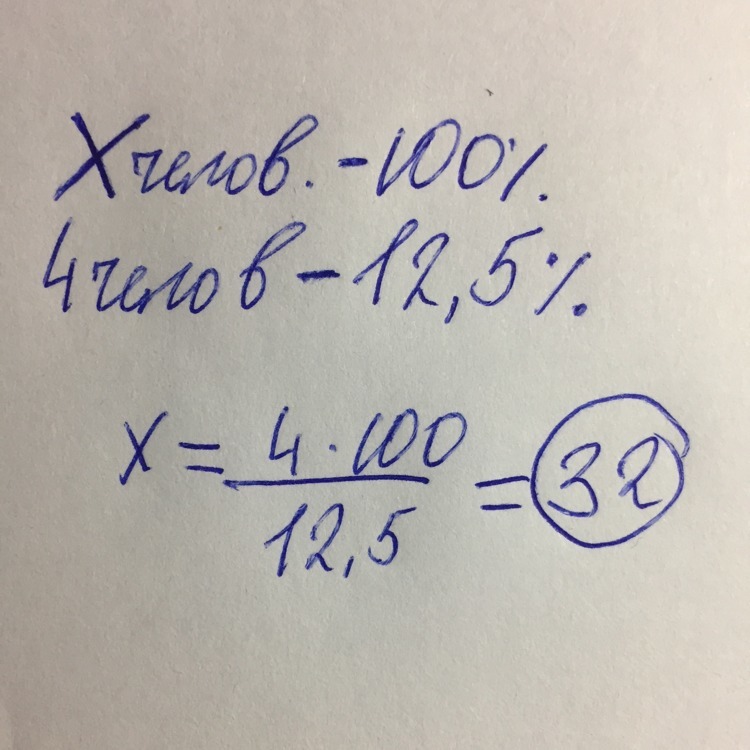 X челов. - 100%.
4 челов - 12,5%.
x = 4 · 100 / 12,5 = 32